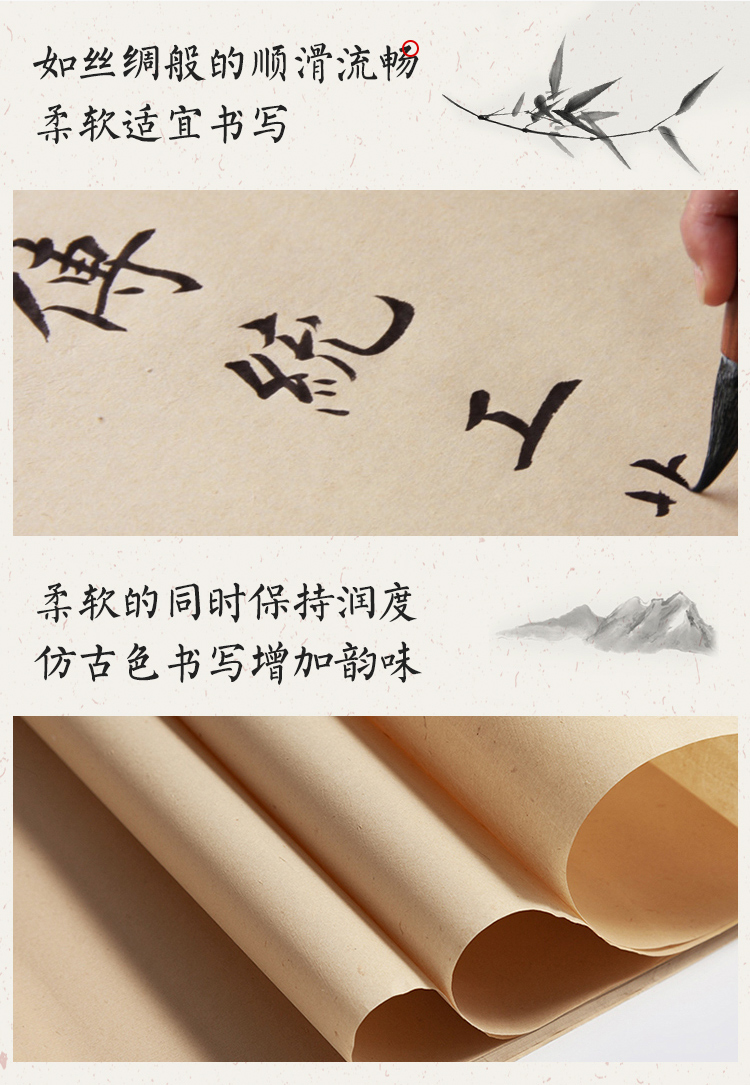 如丝绸般的顺滑流畅
柔软适宜书写
傳統工
柔软的同时保持润度
仿古色书写增加韵味